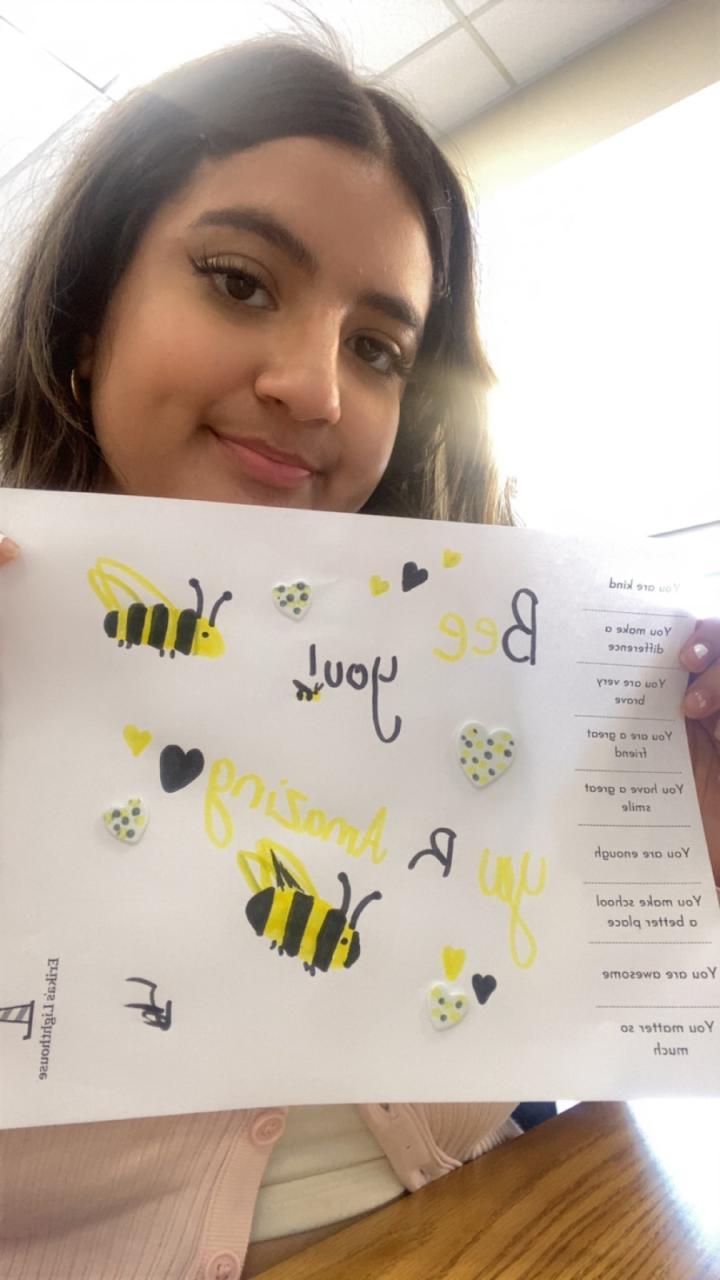 Bee
you!
you R Amazing
You are kind
You make a
difference
You are very
brave
You are a great
friend
You have a great
smile
You are enough
You make school
a better place
You are awesome
You matter so
much
Erika's Lighthouse